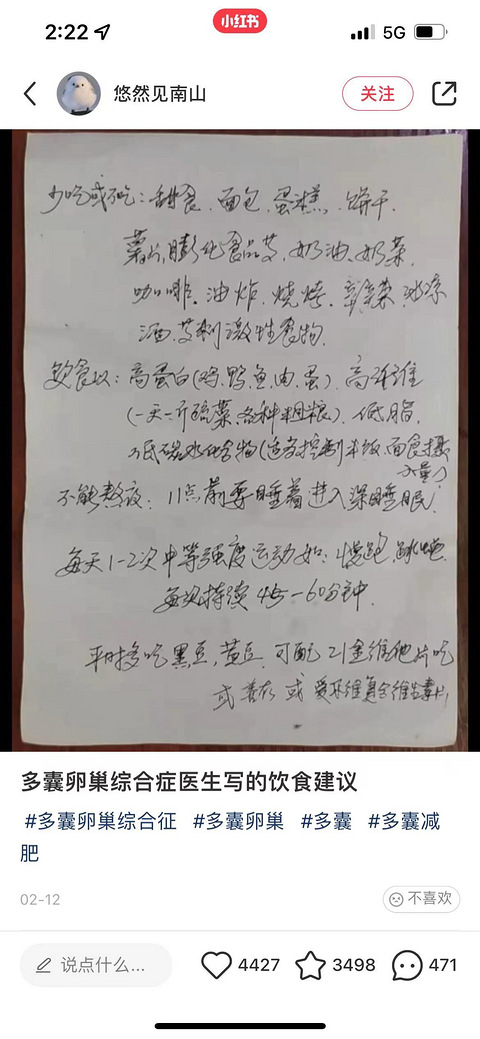 2:22
小红书
5G
悠然见南山
关注
少吃或不吃：甜食、面包、蛋糕、饼干、
薯片,膨化食品等,奶油、奶茶、
咖啡、油炸、烧烤、辛辣、冰凉
酒、等刺激性食物.
饮食以：高蛋白(鸡、鸭、鱼、肉、蛋)、高纤维
(一天一斤蔬菜、各种粗粮)、低脂、
低碳水化合物(适当控制米饭、面食摄
入量)
不能熬夜：11点前要睡着进入深睡眠
每天1-2次中等强度运动如：慢跑、跳绳
每次持续45-60分钟.
平时多吃黑豆,黄豆、可配21金维他片吃
或 善存 或 爱乐维复合维生素片
多囊卵巢综合症医生写的饮食建议
#多囊卵巢综合征 #多囊卵巢 #多囊 #多囊减
肥
02-12
不喜欢
说点什么...
4427
3498
471